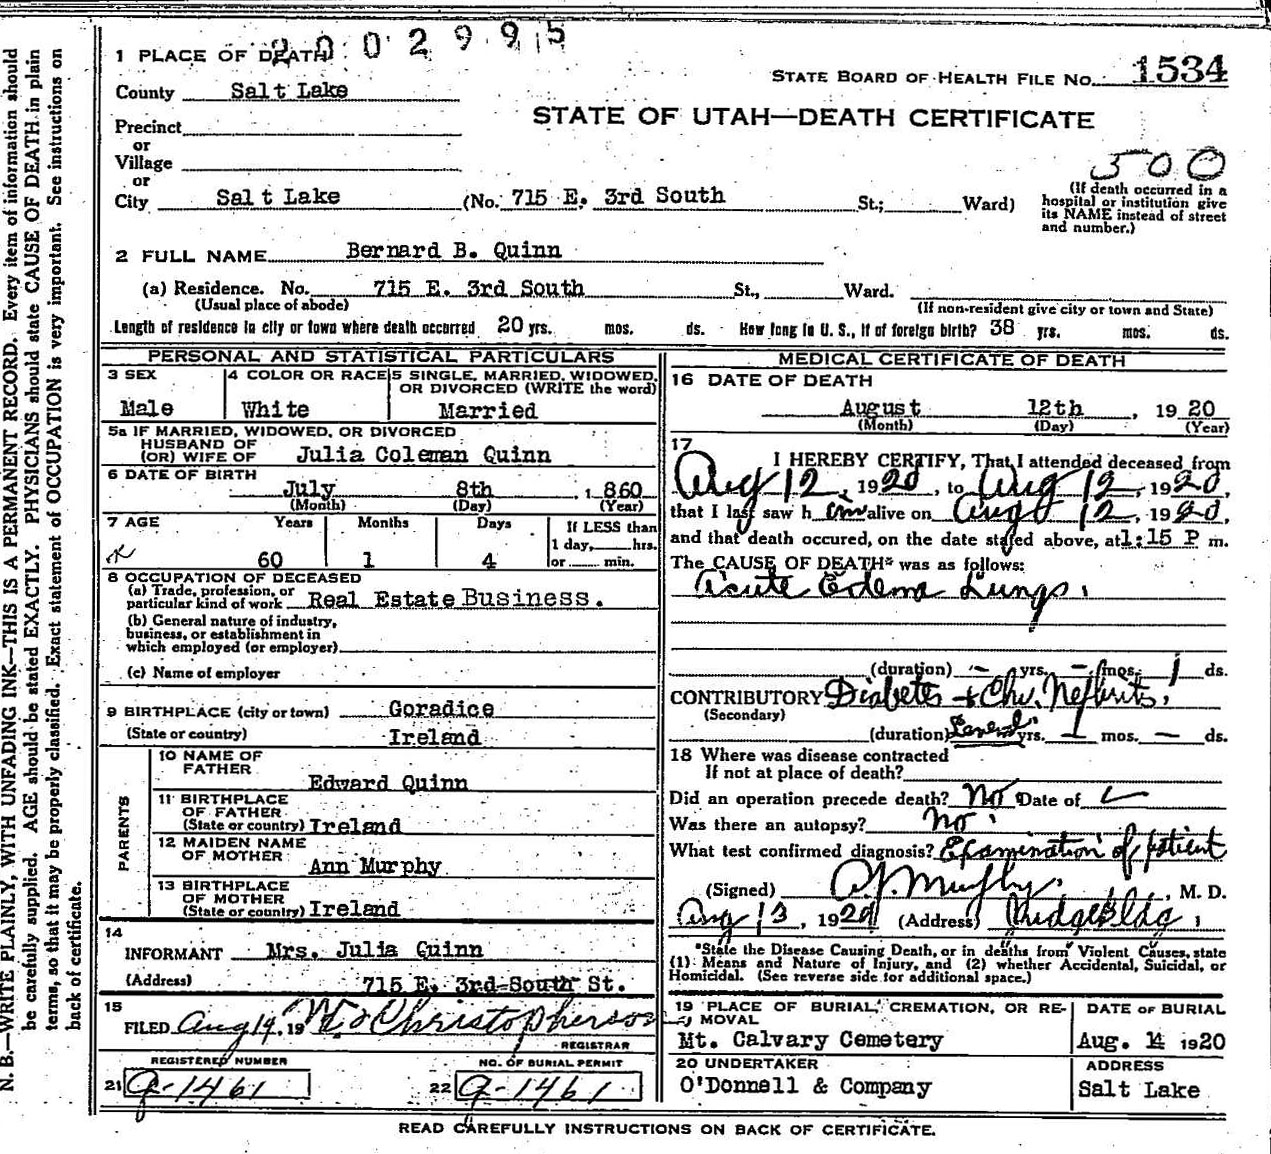 2002995
1 PLACE OF DEATH
STATE BOARD OF HEALTH FILE NO. 1534
County Salt Lake
STATE OF UTAH—DEATH CERTIFICATE
Precinct
or
Village
or
500
City Salt Lake (No. 715 E. 3rd South St.; Ward)
(If death occurred in a
hospital or institution give
its NAME instead of street
and number.)
2 FULL NAME Bernard B. Quinn
(a) Residence. No. 715 E. 3rd South St., Ward.
(Usual place of abode) (If non-resident give city or town and State)
Length of residence in city or town where death occurred 20 yrs. mos. ds. How long in U. S., if of foreign birth? 38 yrs. mos. ds.
PERSONAL AND STATISTICAL PARTICULARS
3 SEX
Male
4 COLOR OR RACE
White
5 SINGLE, MARRIED, WIDOWED,
OR DIVORCED (WRITE the word)
Married
5a IF MARRIED, WIDOWED, OR DIVORCED
HUSBAND OF
(OR) WIFE OF Julia Coleman Quinn
6 DATE OF BIRTH
July 8th, 1860
(Month) (Day) (Year)
7 AGE Years Months Days If LESS than
1 day, hrs.
60 1 4 or min.
8 OCCUPATION OF DECEASED
(a) Trade, profession, or
particular kind of work Real Estate Business.
(b) General nature of industry,
business, or establishment in
which employed (or employer)
(c) Name of employer
9 BIRTHPLACE (city or town) Goradice
(State or country) Ireland
PARENTS
10 NAME OF
FATHER
Edward Quinn
11 BIRTHPLACE
OF FATHER
(State or country) Ireland
12 MAIDEN NAME
OF MOTHER
Ann Murphy
13 BIRTHPLACE
OF MOTHER
(State or country) Ireland
14
INFORMANT Mrs. Julia Quinn
(Address) 715 E. 3rd South St.
15
FILED Aug 19, 19 Christopherson
REGISTRAR
REGISTERED NUMBER NO. OF BURIAL PERMIT
21 a-1461 22 a-1461
MEDICAL CERTIFICATE OF DEATH
16 DATE OF DEATH
August 12th, 1920
(Month) (Day) (Year)
17
I HEREBY CERTIFY, That I attended deceased from
Aug 12, 1920, to Aug 12, 1920,
that I last saw h im alive on Aug 12, 1920,
and that death occured, on the date stated above, at 1:15 P m.
The CAUSE OF DEATH* was as follows:
Acute Edema Lungs.
(duration) — yrs. — mos. 1 ds.
CONTRIBUTORY Diabetes + Chr. Nefbrits.
(Secondary)
(duration) Several yrs. — mos. — ds.
18 Where was disease contracted
If not at place of death?
Did an operation precede death? No Date of
Was there an autopsy? No.
What test confirmed diagnosis? Examination of patient
(Signed) A.J. Murphy, M. D.
Aug 13, 1920 (Address) Judge Bldg.
*State the Disease Causing Death, or in deaths from Violent Causes, state
(1) Means and Nature of Injury, and (2) whether Accidental, Suicidal, or
Homicidal. (See reverse side for additional space.)
19 PLACE OF BURIAL, CREMATION, OR RE-
MOVAL
Mt. Calvary Cemetery
DATE OF BURIAL
Aug. 14 1920
20 UNDERTAKER
O'Donnell & Company
ADDRESS
Salt Lake
READ CAREFULLY INSTRUCTIONS ON BACK OF CERTIFICATE.
N. B.—WRITE PLAINLY, WITH UNFADING INK—THIS IS A PERMANENT RECORD. Every item of information should
be carefully supplied. AGE should be stated EXACTLY. PHYSICIANS should state CAUSE OF DEATH in plain
terms, so that it may be properly classified. Exact statement of OCCUPATION is very important. See instructions on
back of certificate.